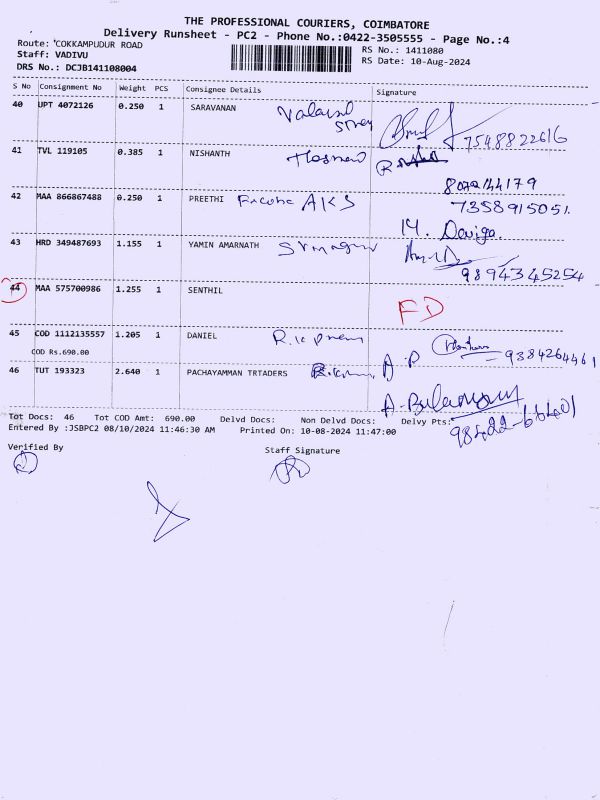 THE PROFESSIONAL COURIERS, COIMBATORE
Delivery Runsheet - PC2 - Phone No.:0422-3505555 - Page No.:4
Route: COKKAMPUDUR ROAD
RS No.: 1411080
Staff: VADIVU
RS Date: 10-Aug-2024
DRS No.: DCJB141108004
S No Consignment No Weight PCS Consignee Details Signature
40 UPT 4072126 0.250 1 SARAVANAN
7548822616
41 TVL 119105 0.385 1 NISHANTH
42 MAA 866867488 0.250 1 PREETHI AKS 7358915051.
M. Daviga.
43 HRD 349487693 1.155 1 YAMIN AMARNATH
9894345254
44 MAA 575700986 1.255 1 SENTHIL
FD
45 COD 1112135557 1.205 1 DANIEL
COD Rs.690.00
A.P 9384264461
46 TUT 193323 2.640 1 PACHAYAMMAN TRTADERS
Tot Docs: 46 Tot COD Amt: 690.00 Delvd Docs: Non Delvd Docs: Delvy Pts:
Entered By :JSBPC2 08/10/2024 11:46:30 AM Printed On: 10-08-2024 11:47:00
Verified By
Staff Signature